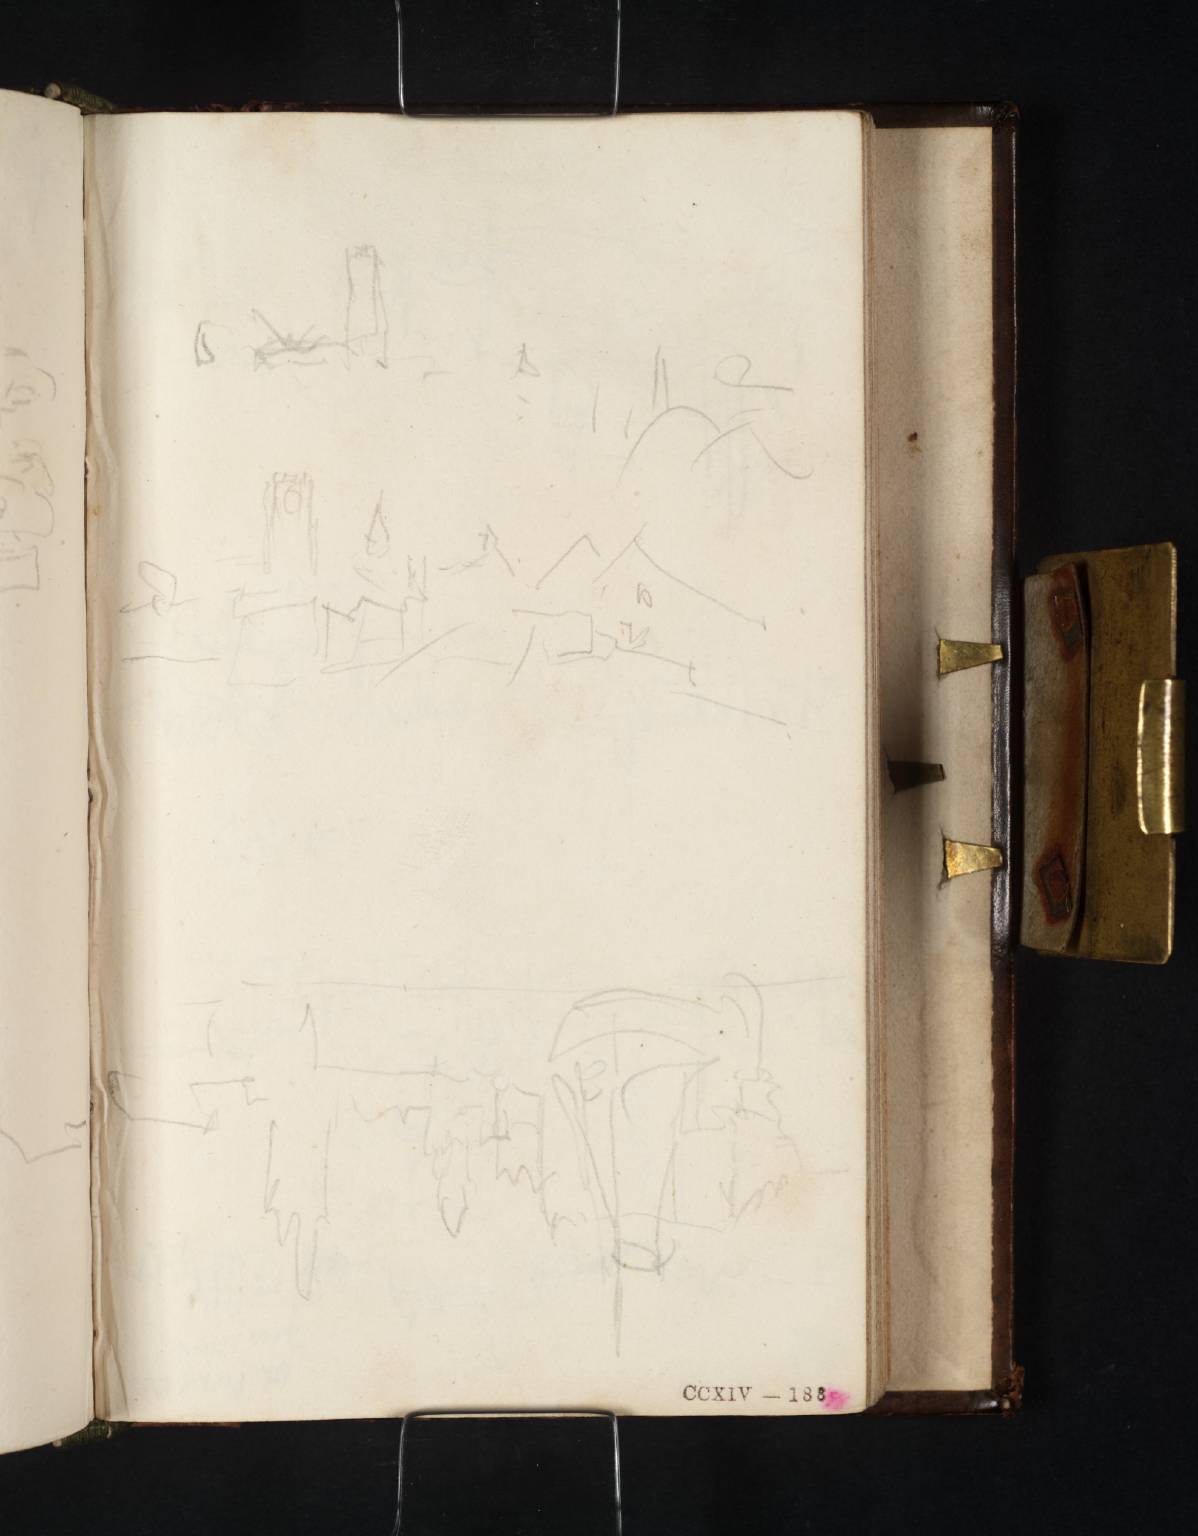 CCXIV — 188